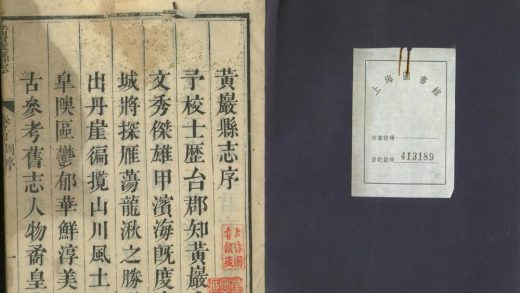 黃巖縣志序
予校士歷台郡知黃巖
文秀傑雄甲濱海旣度
城將探雁蕩龍湫之勝
出丹崖徧攬山川風土
阜隩區鬱郁華鮮淳美
古參考舊志人物矞皇
周序
一
上海圖書館藏
上海圖書館
413189